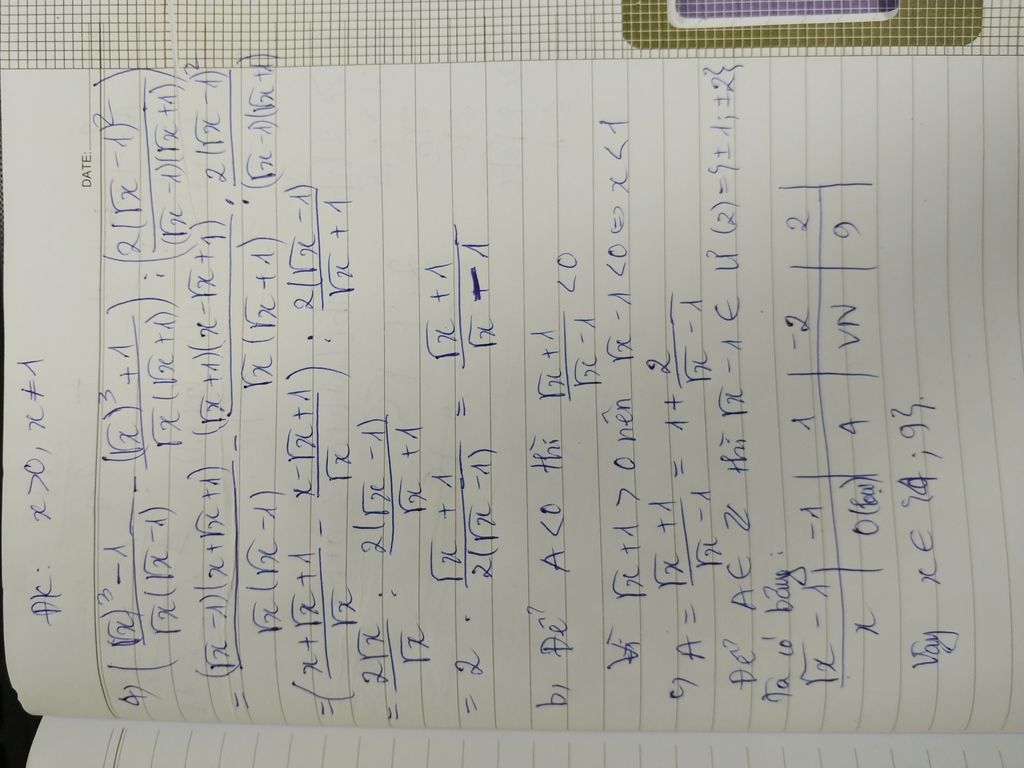 DATE:
ĐK: x>0, x≠1
a, ((√x)³-1 / √x(√x-1) - (√x)³+1 / √x(√x+1)) : (2(√x-1)² / (√x-1)(√x+1))
= (√x-1)(x+√x+1) / √x(√x-1) - (√x+1)(x-√x+1) / √x(√x+1) : 2(√x-1)² / (√x-1)(√x+1)
= (x+√x+1 / √x - x-√x+1 / √x) : 2(√x-1) / √x+1
= 2√x / √x : 2(√x-1) / √x+1
= 2 · √x+1 / 2(√x-1) = √x+1 / √x-1
b, Để A<0 thì √x+1 / √x-1 <0
Vì √x+1 > 0 nên √x-1 <0 ⇔ x<1
c, A = √x+1 / √x-1 = 1+ 2 / √x-1
Để A∈ Z thì √x-1 ∈ Ư(2)={±1;±2}
Ta có bảng:
√x-1 | -1 | 1 | -2 | 2
x | 0(loại) | 4 | VN | 9
Vậy x∈ {4;9}.